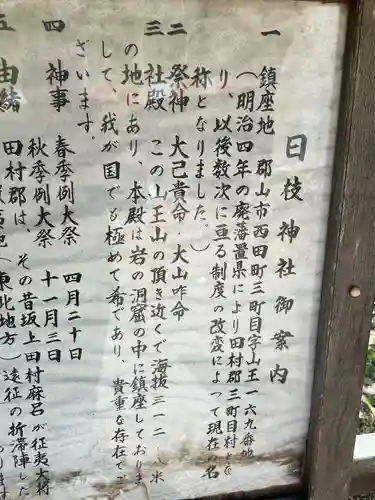 日枝神社御案内
一 鎮座地 郡山市西田町三町目字山王一六九番地
(明治四年の廃藩置県により田村郡三町目村とな
り、以後数次に亘る制度の改変によって現在の名
称となりました。)
二 祭神 大己貴命・大山咋命
三 社殿 この山王山の頂き近くで海抜三一二・八米
の地にあり、本殿は岩の洞窟の中に鎮座しておりま
して、我が国でも極めて希であり、貴重な存在でご
ざいます。
四 神事 春季例大祭 四月二十日
秋季例大祭 十一月三日
五 由緒
田村郡は、その昔坂上田村麻呂が征夷大将
(東北地方)遠征の折滞陣した